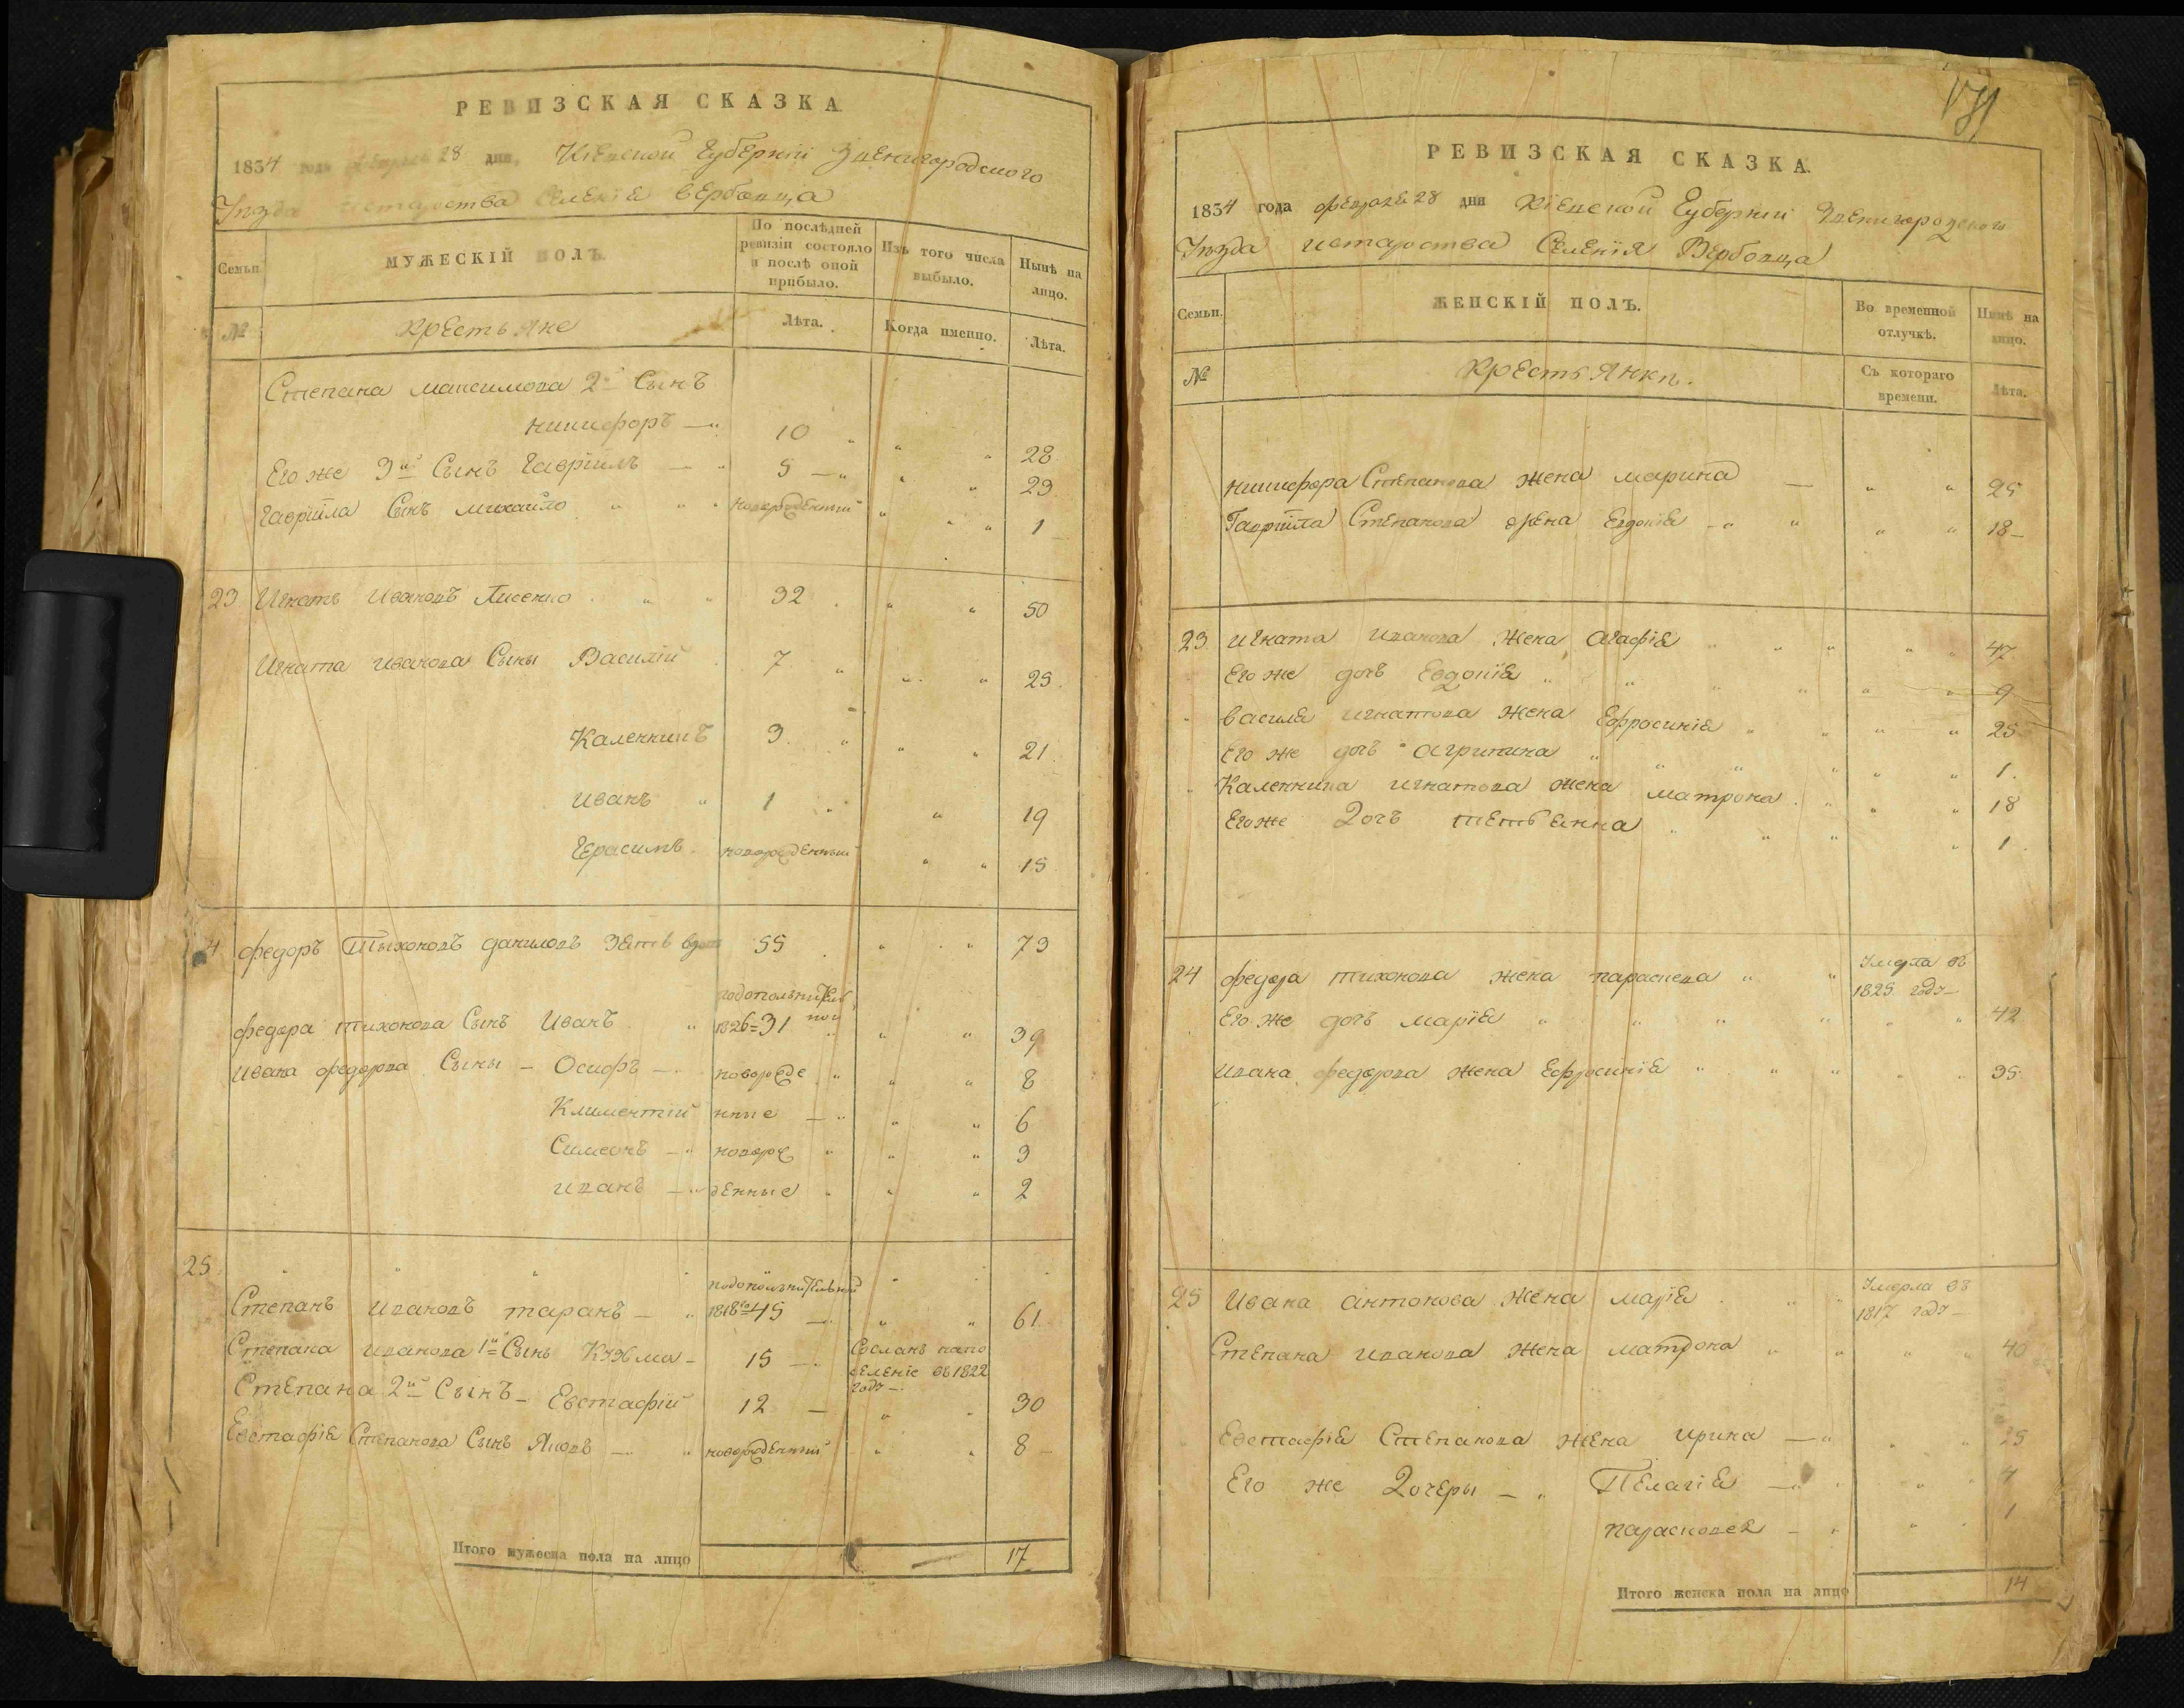 РЕВИЗСКАЯ СКАЗКА.
1834 года февраля 28 дня, Кіевской Губерніи Звенигородского
Уезда истароства Селенія Вербовца
Семьи.
МУЖЕСКІЙ ПОЛЪ.
По послѣдней ревизіи состояло и послѣ оной прибыло.
Изъ того числа выбыло.
Нынѣ на лицо.
№
Крестьяне
Лѣта.
Когда именно.
Лѣта.
Степана Максимова 2й Сынъ
Никифоръ — 10 28
Его же 3й Сынъ Гавріилъ — 5 — 23
Гавріила Сынъ Михайло новорожденный 1
23 Игнатъ Ивановъ Лисенко 32 50
Игната Иванова Сыны Василій 7 25
Каленникъ 3 21
Иванъ 1 19
Герасимъ новорожденный 15
4 Федоръ Тыхоновъ Даниловъ зять 55 73
Федора Тихонова Сынъ Иванъ 1826=31 39
Ивана Федорова Сыны — Осифъ — новорожде 8
Климентій нные — 6
Симеонъ — новорож 3
Иванъ — денные 2
25
Степанъ Ивановъ Таранъ — 1818 45 — 61
Степана Иванова 1й Сынъ Кузма — 15 — Сосланъ напо
селеніе въ 1822
году —
Степана 2й Сынъ — Евстафій 12 — 30
Евстафія Степанова Сынъ Яковъ — новорожденный 8
Итого мужеска пола на лицо 17
РЕВИЗСКАЯ СКАЗКА.
1834 года февраля 28 дня Кіевской Губерніи Звенигородского
Уезда истароства Селенія Вербовца
Семьи.
ЖЕНСКІЙ ПОЛЪ.
Во временной отлучкѣ.
Нынѣ на лицо.
№
Крестьянки.
Съ котораго времени.
Лѣта.
Никифора Степанова жена Марина — 25
Гавріила Степанова жена Евдокія 18
23 Игната Иванова жена Агафія 47
Его же дочъ Евдокія 9
Василя Игнатова жена Ефросинія 25
Его же дочъ Агрипина 1
Каленника Игнатова жена Матрона 18
Его же Дочъ Тетьянна 1
24 Федора Тихонова жена Параскева Умерла въ
1825 году —
Его же дочъ Марія 42
Ивана Федорова жена Ефросинія 35
25 Ивана Антонова жена Марія Умерла въ
1817 году —
Степана Иванова жена Матрона 40
Евстафія Степанова жена Ирина — 25
Его же Дочеры — Пелагія — 4
Параскове — 1
Итого женска пола на лицо 14